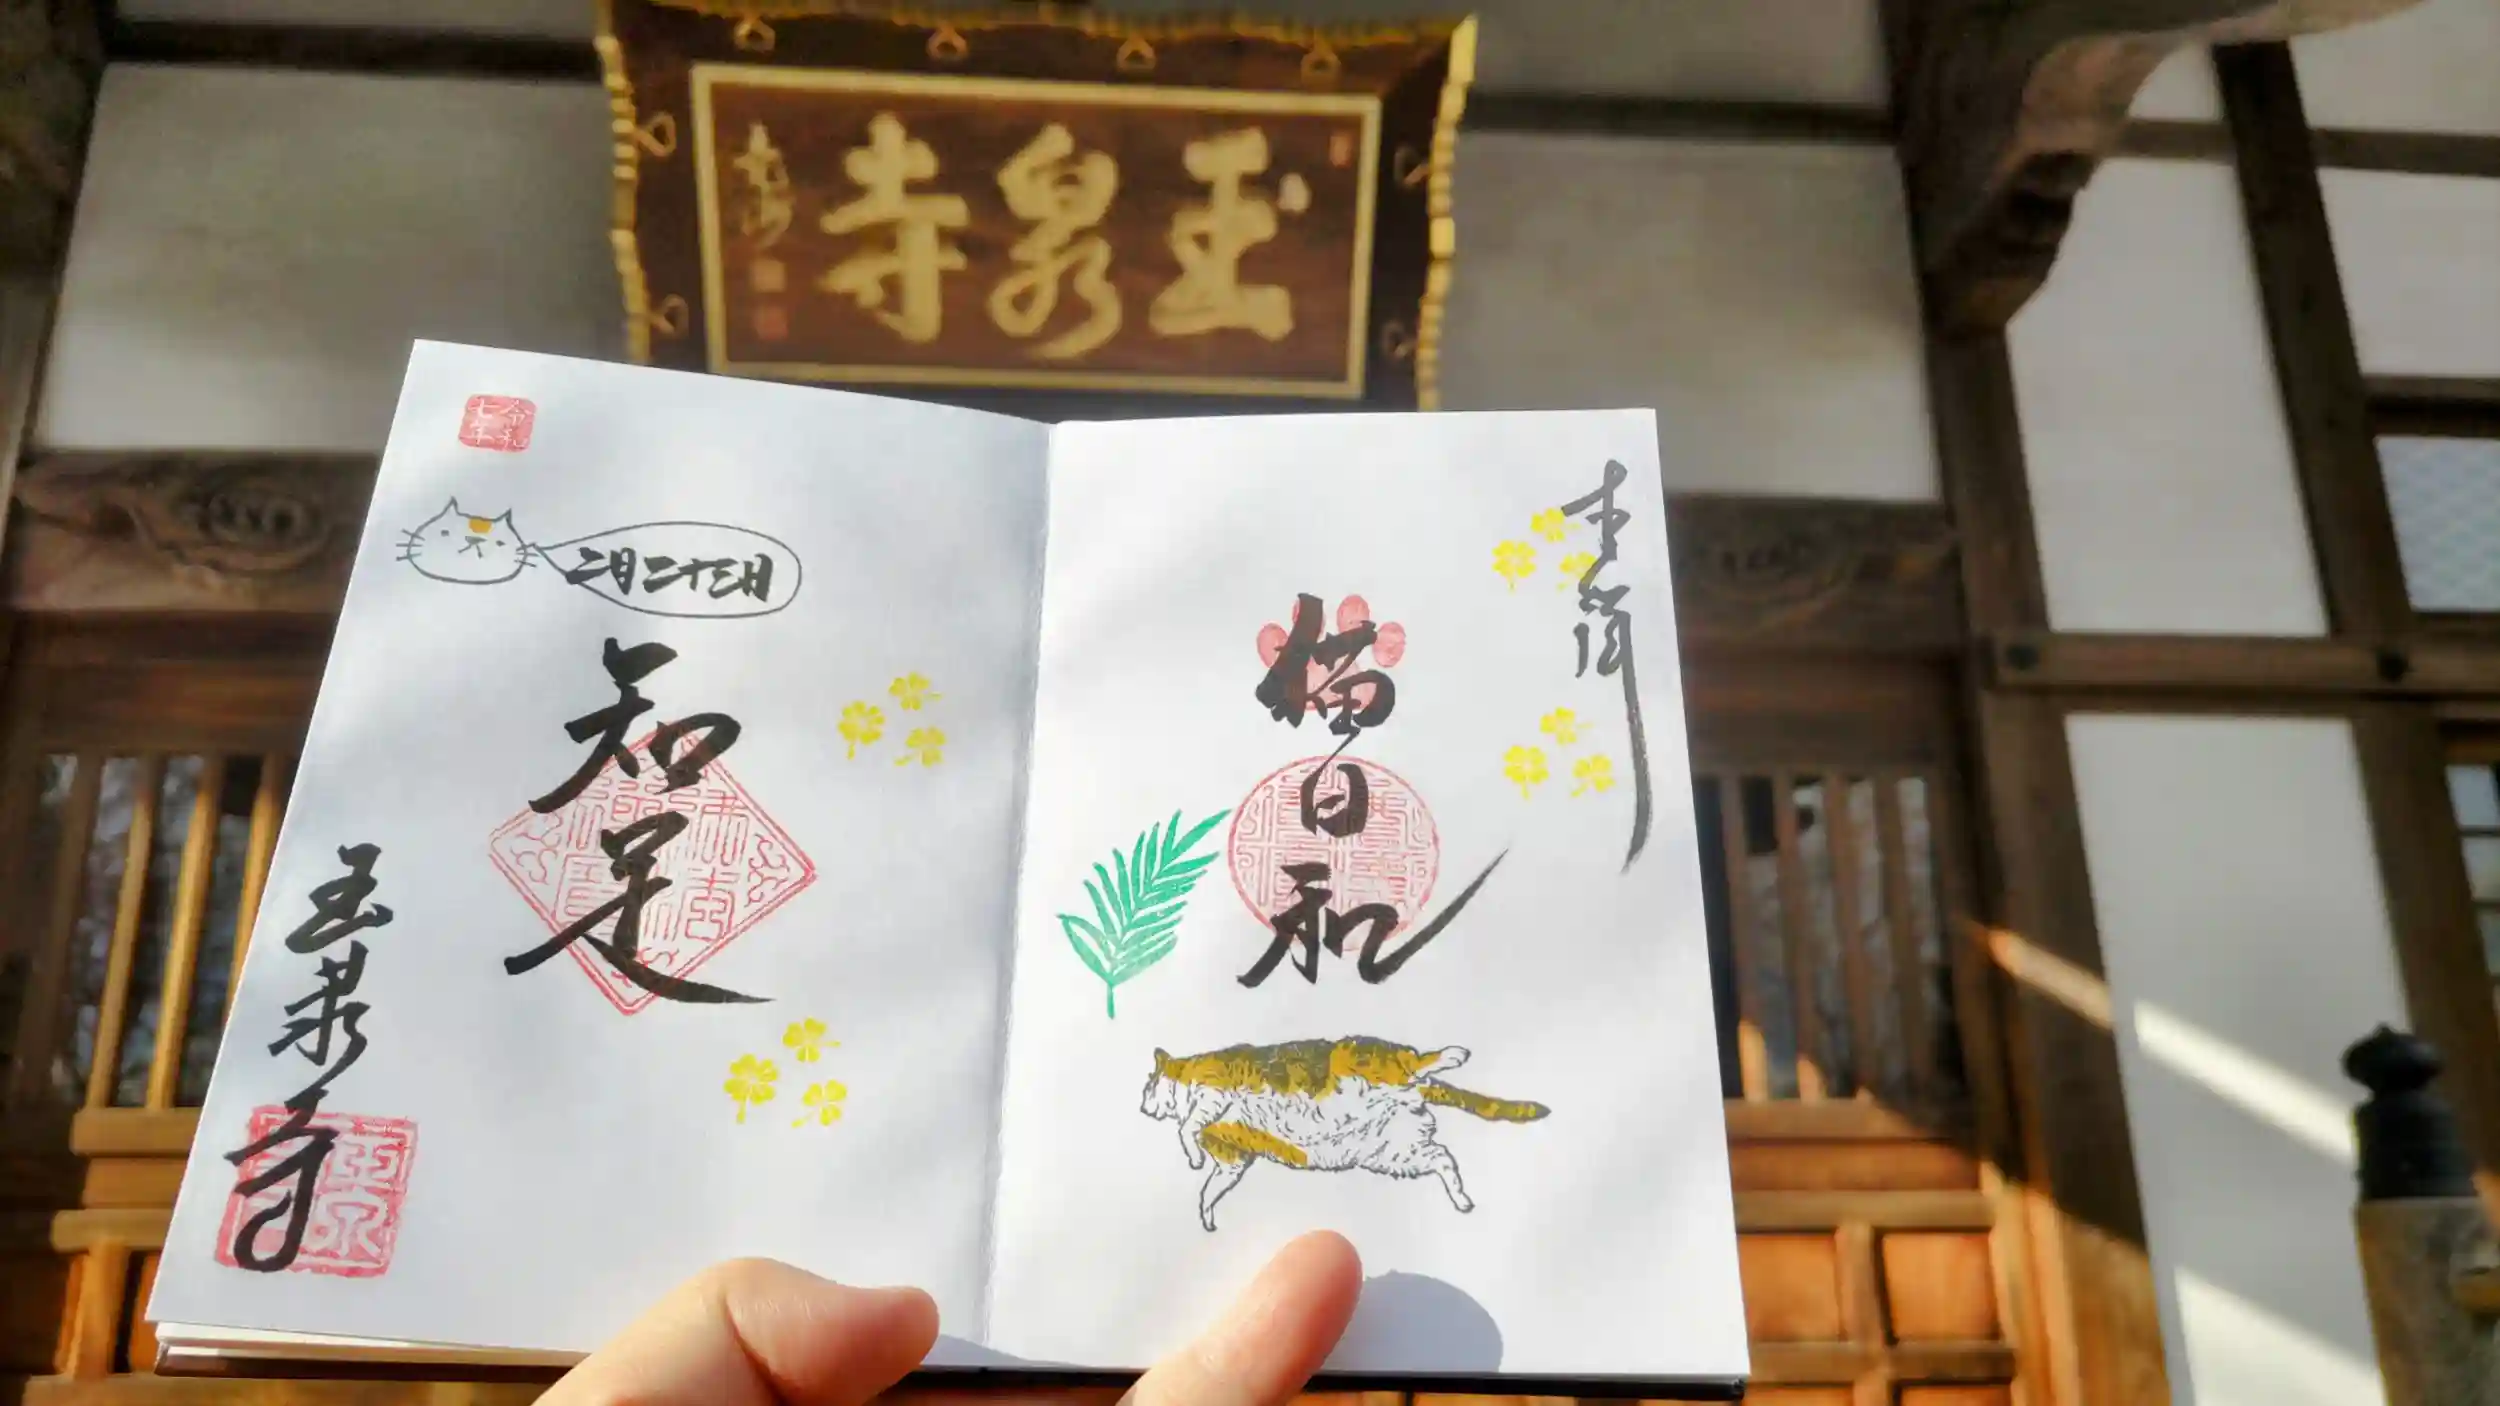 玉泉寺
奉拝
猫日和
令和
七年
二月二十三日
知足
玉泉寺